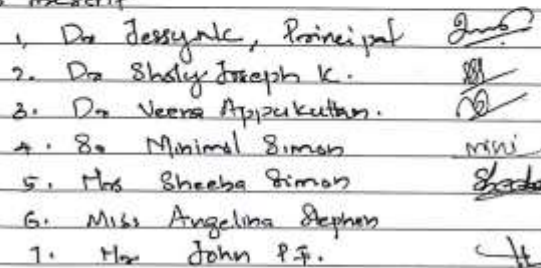 1, Dr Jessy N.C, Principal
2. Dr Sholy Joseph K.
3. Dr Veena Appukuttan.
4. Sr Minimol Simon mini
5. Mrs Sheeba Simon Sheeba
6. Miss Angelina Stephen
7. Mr John P.J.